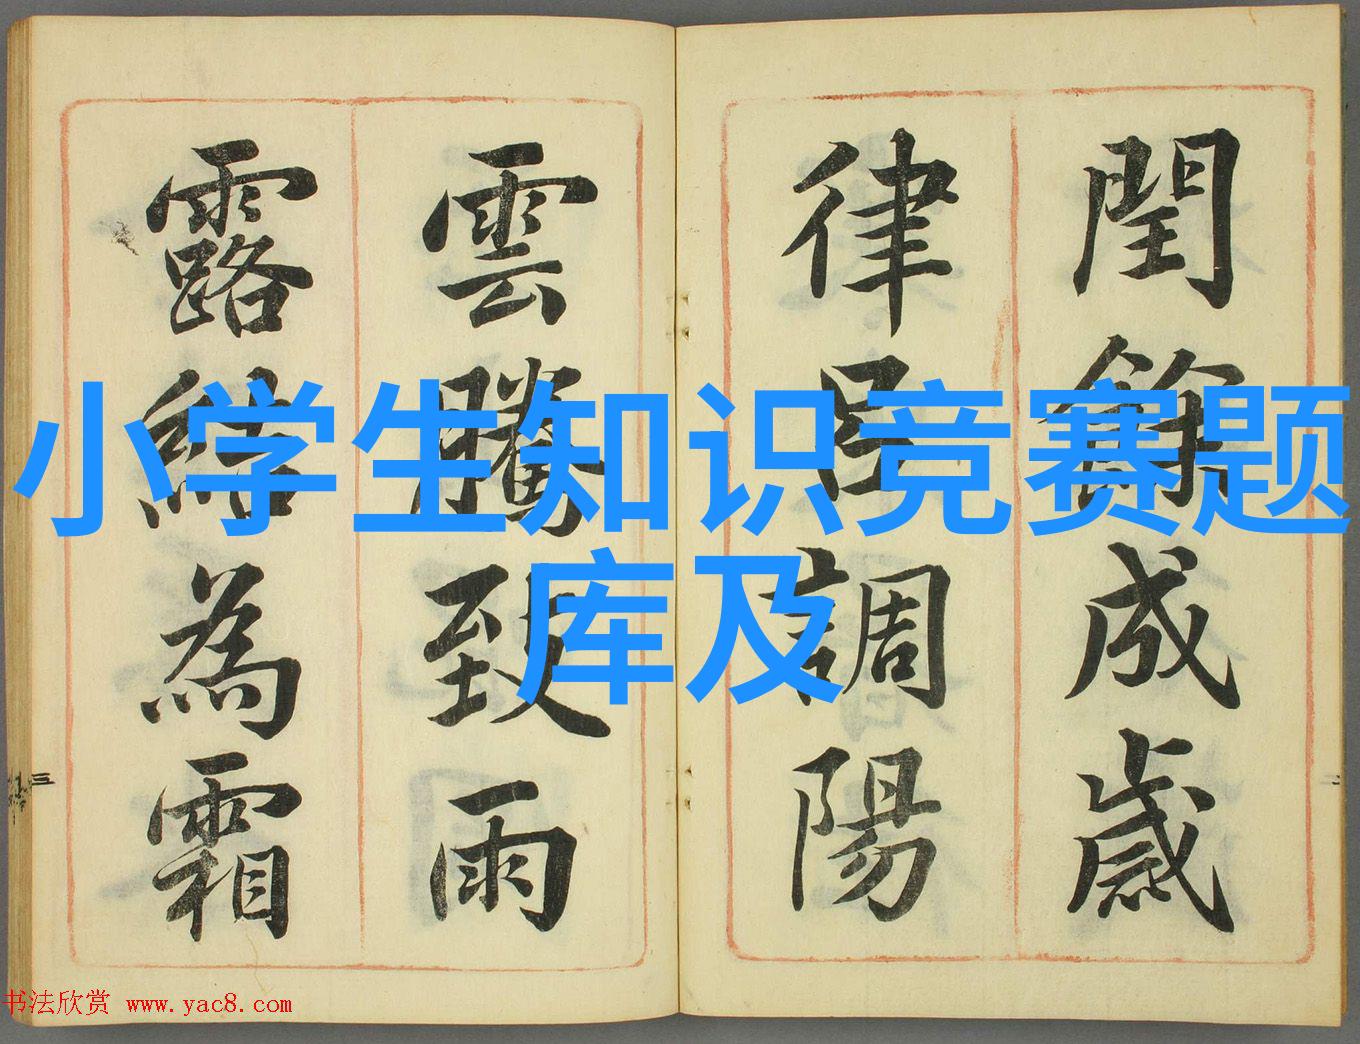 小学生知识竞赛题
库及
閏餘成歲
律呂調陽
雲騰致雨
露結為霜
三
二
书法欣赏 www.yac8.com